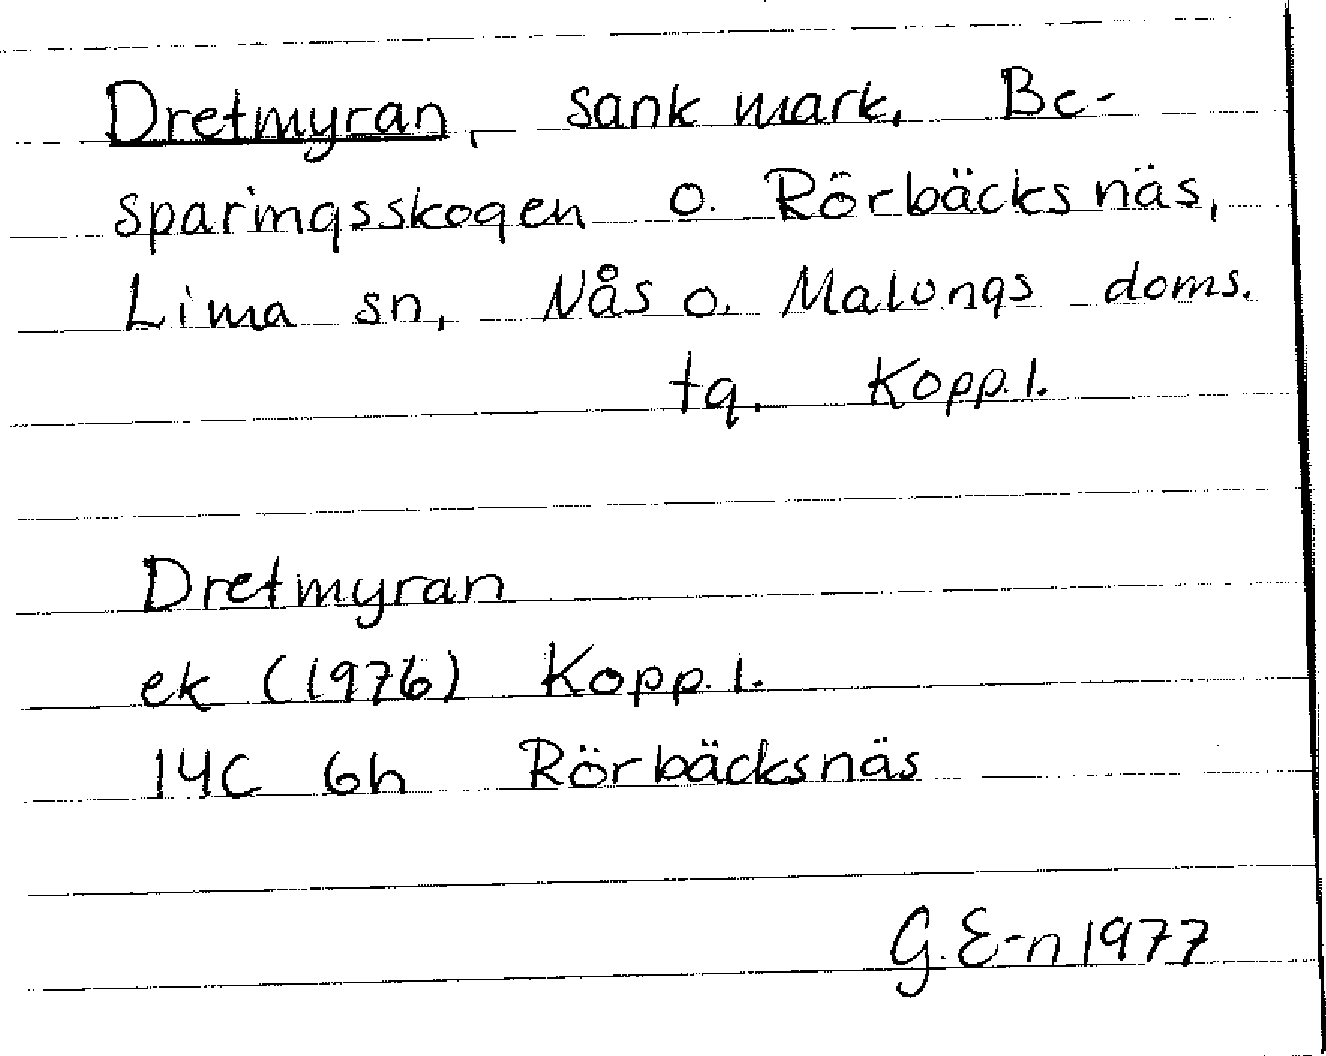 Dretmyran, sank mark, Be-
sparingsskogen o. Rörbäcksnäs,
Lima sn, Nås o. Malungs doms.
tg, Kopp. l.
Dretmyran
ek (1976) Kopp. l.
14C 6h Rörbäcksnäs
G. E-n 1977